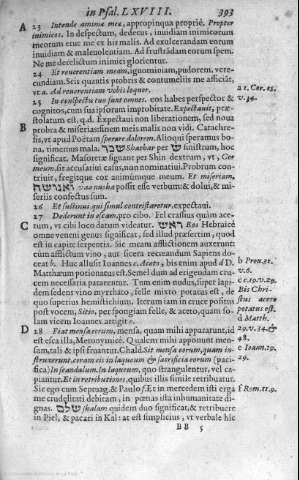 in Psal. LXVIII. 393
A 23 Intende animæ meæ, appropinqua propriè. Propter
inimicos. In despectum, dedecus, inuidiam inimicorum
meorum erue me ex his malis. Ad excularandam eorum
inuidiam & maleuolentiam. Ad frustrãdam eorum spem.
Ne me derelictum inimici glorientur.
24 Et reuerentiam meam, ignominiam, pudorem, vere-
cundiam. Seis quantis probris & contumeliis me afficiãt,
vt a. Ad reuerentiam vobis loquor.
a 1. Cor. 15.
v. 34.
25 In conspectu tuo sunt omnes. eos habes perspectos &
cognitos, cum sua ipsorum improbitate. Expectauit, præ-
stolatum est. q.d. Expectaui non liberationem, sed noua
B probra & miserias: sinem meis malis non vidi. Catachre-
sis, vt apud Poëtam sperare dolorem. Alioqui speramus bo-
na, timemus mala. שבר Shabar per ש sinistrum, hoc
significat. Masoretæ signant per Shin dextrum, vt, Cor
meum sit accusatiui casus, non nominatiui. Probrum con-
triuit, fregitque cor animumque meum. Et miseriam,
ואנושה vaa nusha possit esse verbum: & dolui, & mi-
seriis confectus sum.
26 Et sustinui qui simul contristaretur. expectaui.
27 Dederunt in escam, pro cibo. Fel crassius quàm ace-
C tum, vt cibi loco datum videatur. ראש Ros Hebraicè
omne veneni genus significat, sed illud præsertim, quod
est in capite serpentis. Sic meam afflictionem auxerunt
cùm afflictum vino, aut sicera recreandum Sapiens do-
ceat b. Huc allusit Ioannes c. Aceto, bis enim apud d D.
Matthæum potionatus est. Semel dum ad erigendam cru-
cem necessaria pararentur. Tum enim nudus, super lapi-
dem sedens vino myrrhato, felle mixto potatus est, de
quo superius hemistichium. Iterum iam in cruce positus
post vocem, Sitio, per spongiam felle, & aceto, quam so-
lam vocem Ioannes attigit e.
b Prou. 31.
v. 6.
c c. 19. v. 29.
Bis Chri-
stus aceto
potatus est.
d Matth.
29. v. 34. &
48.
e Ioan. 19.
29.
D 28 Fiat mensa eorum, mensa, quam mihi appararunt, id
est esca illa, Metonymicè. Qualem mihi apponunt men-
sam, talis & ipsi fruantur. Chald. Sit mensa eorum, quam in-
struxerunt, coram eis in laqueum & sacrificia eorum (pacifi-
ca) In scandalum. In laqueum, quo strangulentur, vel ca-
piantur. Et in retributiones, quibus illis simile retribuatur.
Sic ego cum Septuag. & Paulo f Et in mercedem isti erga
me crudelitati debitam, in pœnas ista inhumanitate di-
gnas. שלם shalam quidem duo significat, & retribuere
in Piel, & pacari in Kal: at est simplicius, vt verbale hic
f Rom. 11. 9.
BB 5